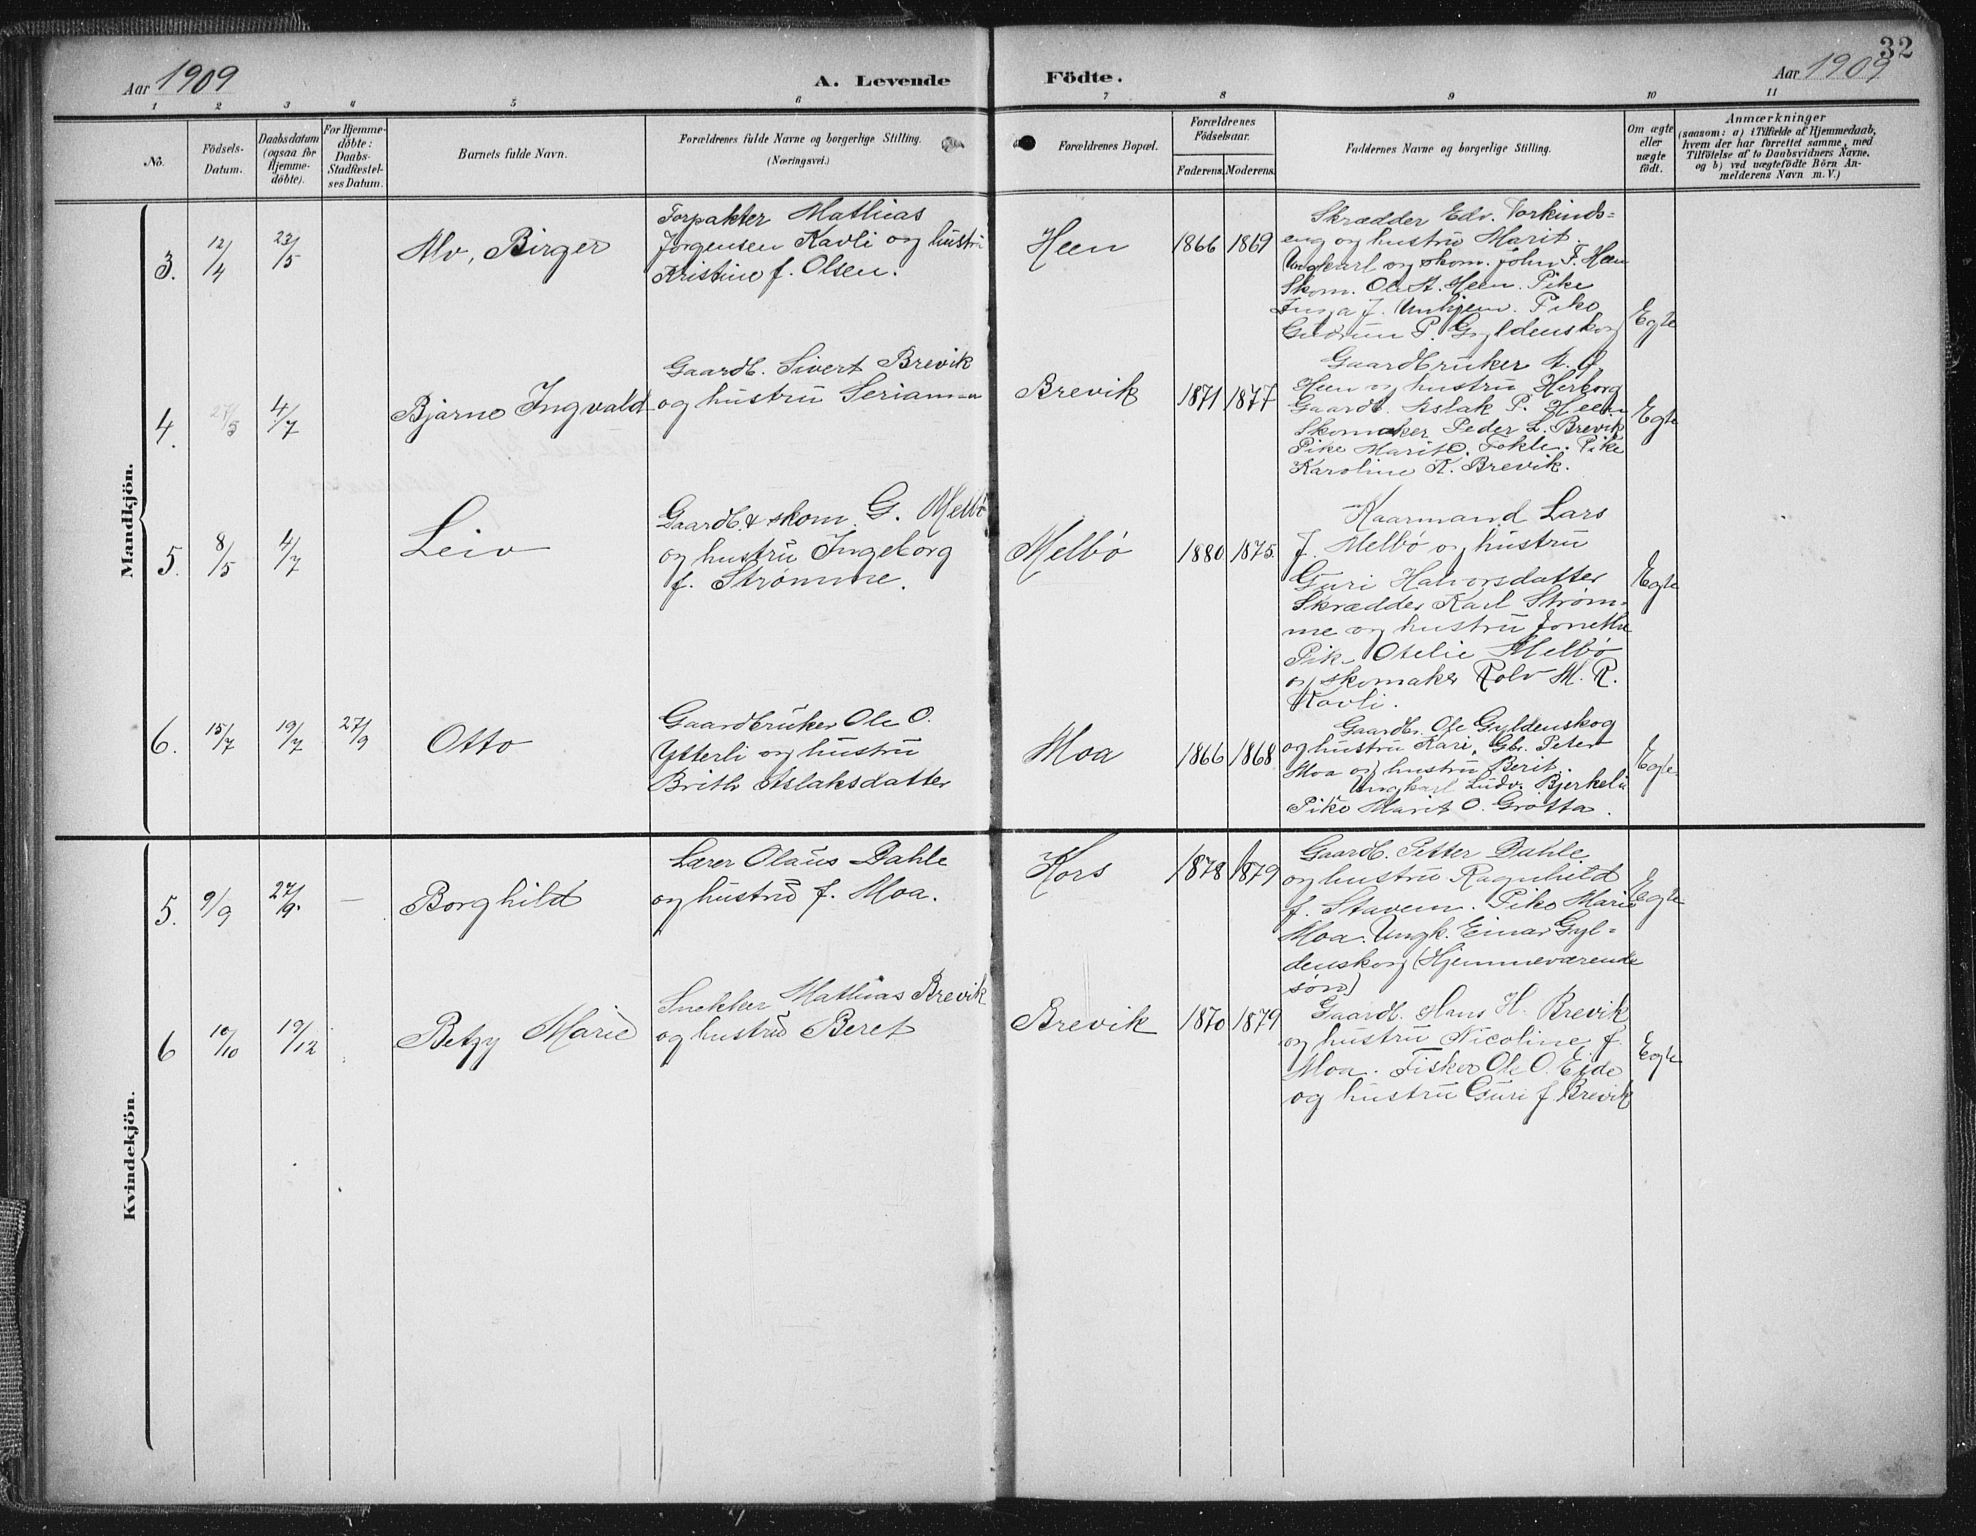 32
Aar 1909
A. Levende
Födte.
Aar 1909
1 2 3 4 5 6 7 8 9 10 11
No.
Födsels-
Datum.
Daabsdatum
(ogsaa for
Hjemme-
döbte).
For Hjemme-
döbte:
Daabs-
Stadfæstel-
ses Datum.
Barnets fulde Navn.
Forældrenes fulde Navne og borgerlige Stilling.
(Næringsvei.)
Forældrenes Bopæl.
Forældrenes
Födselsaar.
Faderens. Moderens.
Faddernes Navne og borgerlige Stilling.
Om ægte
eller
uægte
födt.
Anmærkninger
(saasom: a) i Tilfælde af Hjemmedaab,
hvem der har forrettet samme, med
Tilföielse af to Daabsvidners Navne,
og b) ved uægtefödte Börn An-
melderens Navn m. V.)
Mandkjön.
3. 12/4 23/5
Alv, Birger
Forpakter Mathias
Jørgensen Kavli og hustru
Kristine f. Olsen.
Heen
1866 1869
Skrædder Edv. Torkinds-
eng og hustru Marit.
Ungkarl og skom. John T. Heen
Skom. Ole A. Heen. Pike
Inga J. Unhjem. Pike
Gudrun P. Gyldenskog
Egte
4. 27/5 4/7
Bjarne Ingvald
Gaardb. Sivert Brevik
og hustru Serianna
Brevik
1871 1877
Gaardbruker
Heen og hustru Herborg
Gaardb. Aslak P. Heen
Skomaker Peder L. Brevik
Pike Marit O. Fokle. Pike
Karoline K. Brevik.
Egte
5. 8/5 4/7
Leiv
Gaardb. & skom. G. Melbø
og hustru Ingeborg
f. Strømme.
Melbø
1880 1875
Kaarmand Lars
J. Melbø og hustru
Guri Halvorsdatter
Skrædder Karl Strøm-
me og hustru Jonetha
Pike Otelie Melbø
og skomaker Rolv M. R.
Kavli.
Egte
6. 15/7 19/7 27/9
Otto
Gaardbruker Ole O.
Ytterli og hustru
Brith Aslaksdatter
Moa
1866 1868
Gaardbr. Ole Gyldenskog
og hustru Kari, Gbr. Peter
Moa og hustru Berit.
Ungkarl Ludv. Bjerkeli
Pike Marit O. Grøtta.
Egte
Kvindekjön.
5. 9/9 27/9. —
Borghild
Lærer Olaus Dahle
og hustru f. Moa.
Kors
1878 1879
Gaardb. Petter Dahle
og hustru Ragnhild
f. Stavem. Pike Marie
Moa. Ungk. Einar Gyl-
denskog (Hjemmeværende
søn)
Egte
6 10/10 19/12
Betzy Marie
Snekker Mathias Brevik
og hustru Beret
Brevik
1870 1879
Gaardb. Hans H. Brevik
og hustru Nicoline f.
Moa. Fisker Ole O. Eide
og hustru Guri f Brevik
Egte